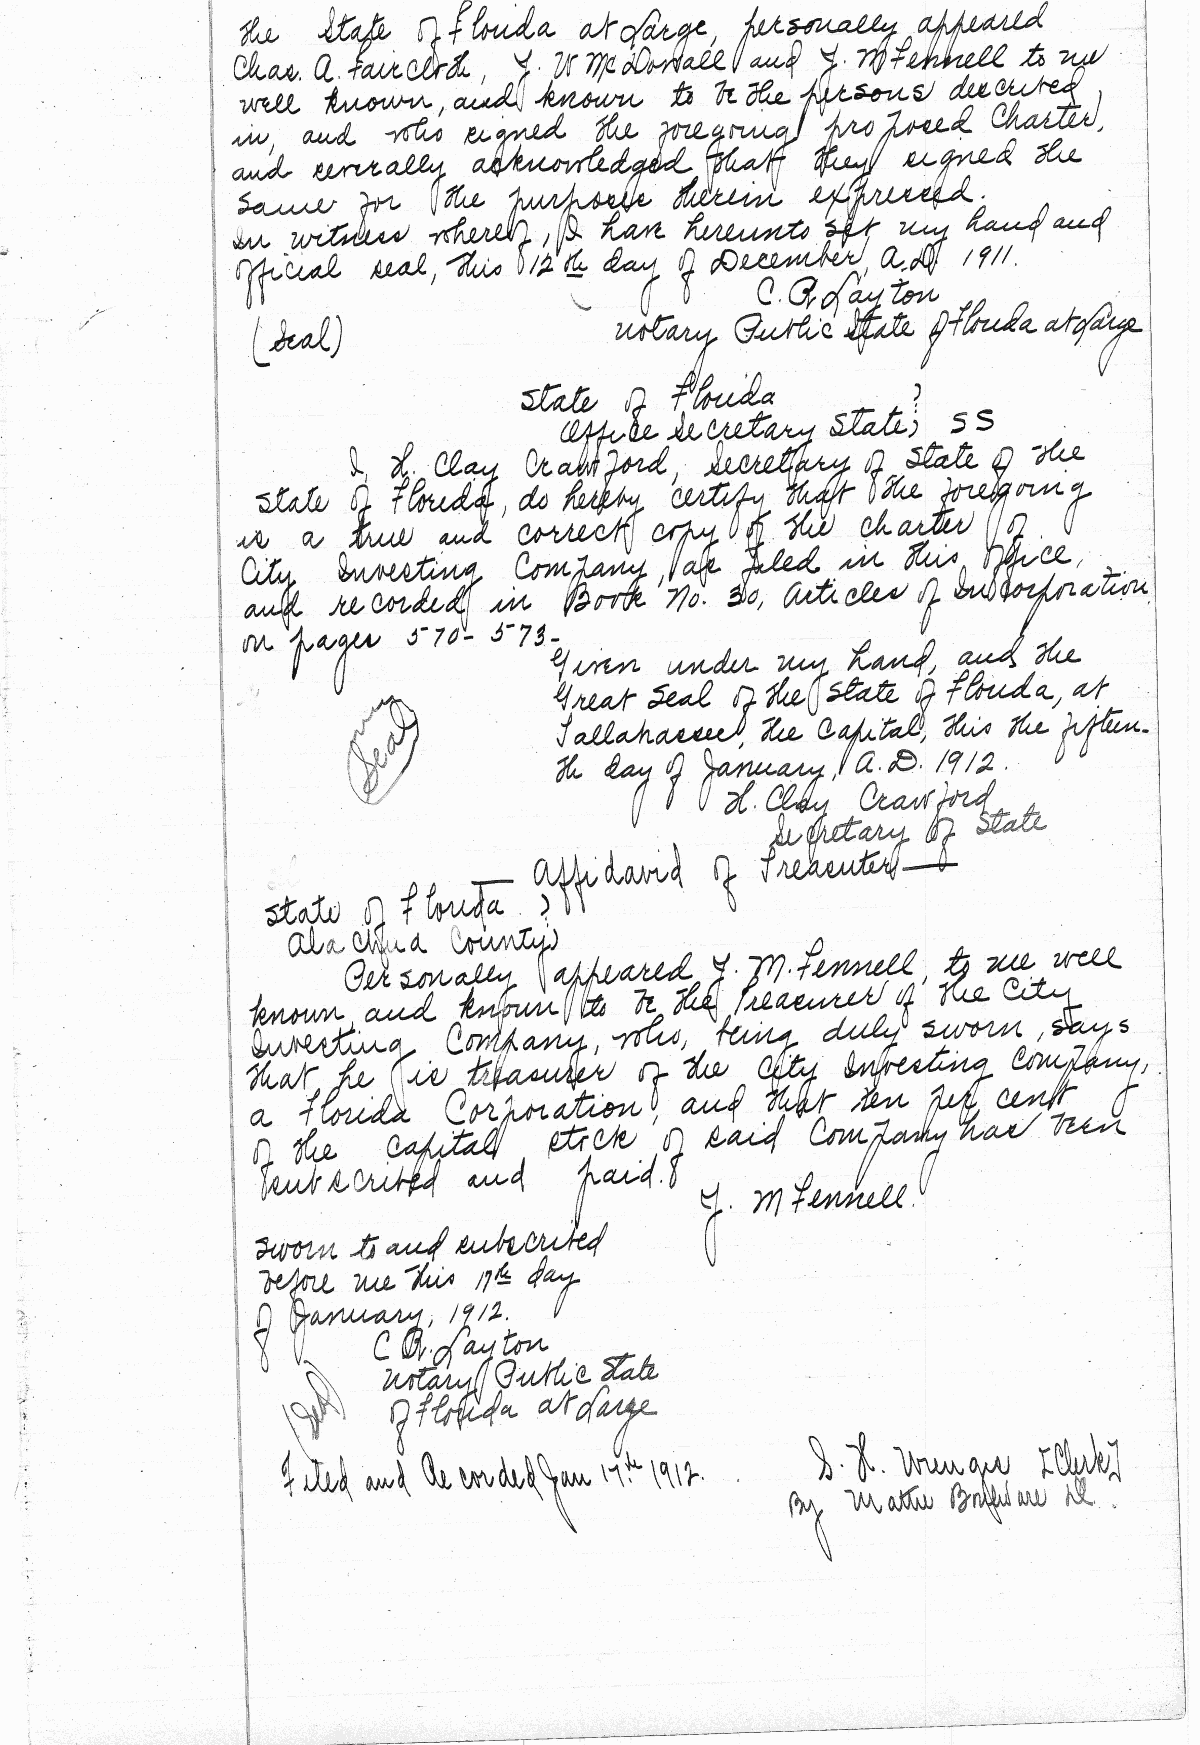 the State of Florida at Large, personally appeared
Chas. A. Faircloth, J. W McDonall and J. M Fennell to me
well known, and known to be the persons described
in, and who signed the foregoing proposed Charter,
and severally acknowledged that they signed the
same for the purposes therein expressed.
In witness whereof, I have hereunto set my hand and
official seal, this 12th day of December, A.D. 1911.
C. R Layton
(Seal)
Notary Public State of Florida at Large
State of Florida )
Office Secretary State) SS
I, H. Clay Crawford, Secretary of State of the
State of Florida, do hereby certify that the foregoing
is a true and correct copy of the charter of
City Investing Company, as filed in this office,
and recorded in Book No. 30, Articles of Incorporation,
on pages 570-573-
Given under my hand, and the
Great Seal of the State of Florida, at
Tallahassee, the Capital, this the fifteen-
th day of January, A.D. 1912.
Seal
H. Clay Crawford
Secretary of State
— Affidavid of Treasuter —
State of Florida )
Alachua County)
Personally appeared J. M. Fennell, to me well
known, and known to be the Treasurer of the City
Investing Company, who, being duly sworn, says
that he is treasurer of the City Investing Company,
a Florida Corporation, and that ten per cent
of the capital stock of said Company has been
subscribed and paid.
J. M Fennell.
Sworn to and subscribed
before me this 17th day
of January, 1912.
C R. Layton
Notary Public State
(Seal) of Florida at Large
Filed and Recorded Jan 17th 1912.
S. H. Wienges [Clerk]
By Mattie